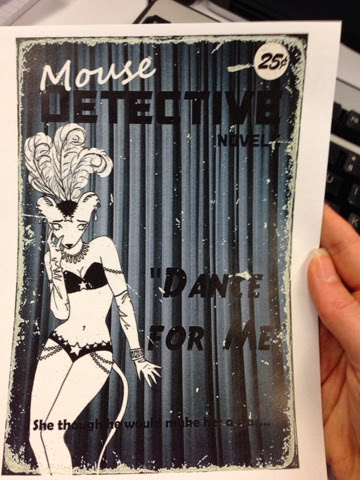 Mouse
25¢
DETECTIVE
NOVEL
"DANCE
FOR ME
She though he would make her a